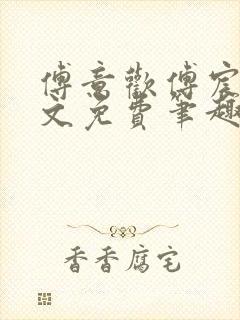 傅意歡傅宸
文免費筆趣
香香腐宅